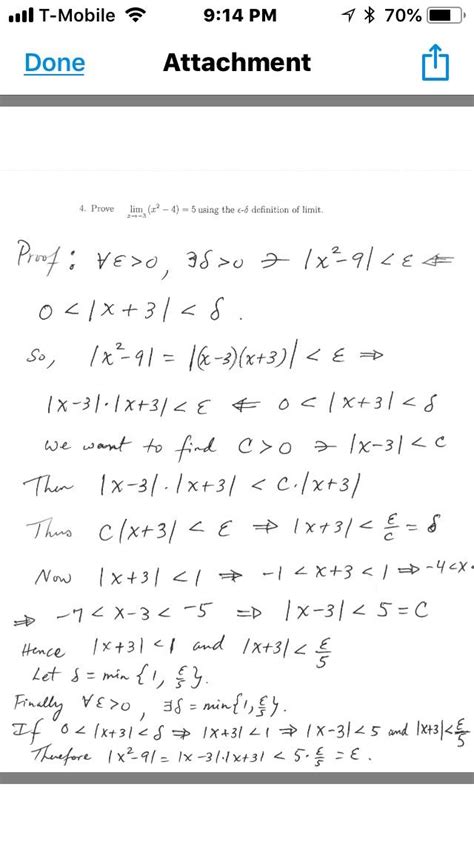 T-Mobile 9:14 PM 70%
Done Attachment
4. Prove lim x→−3 (x² − 4) = 5 using the ϵ-δ definition of limit.
Proof: ∀ε>0, ∃δ>0 ∋ |x²-9| < ε ⇐
0 < |x+3| < δ.
So, |x²-9| = |(x-3)(x+3)| < ε ⇒
|x-3|·|x+3| < ε ⇐ 0 < |x+3| < δ
We want to find C>0 ∋ |x-3| < C
Then |x-3|·|x+3| < C·|x+3|
Thus C|x+3| < ε ⇒ |x+3| < ε/C = δ
Now |x+3| < 1 ⇒ -1 < x+3 < 1 ⇒ -4 < x
⇒ -7 < x-3 < -5 ⇒ |x-3| < 5 = C
Hence |x+3| < 1 and |x+3| < ε/5
Let δ = min {1, ε/5}.
Finally ∀ε>0, ∃δ = min{1, ε/5}.
If 0 < |x+3| < δ ⇒ |x+3| < 1 ⇒ |x-3| < 5 and |x+3| < ε/5
Therefore |x²-9| = |x-3|·|x+3| < 5·ε/5 = ε.